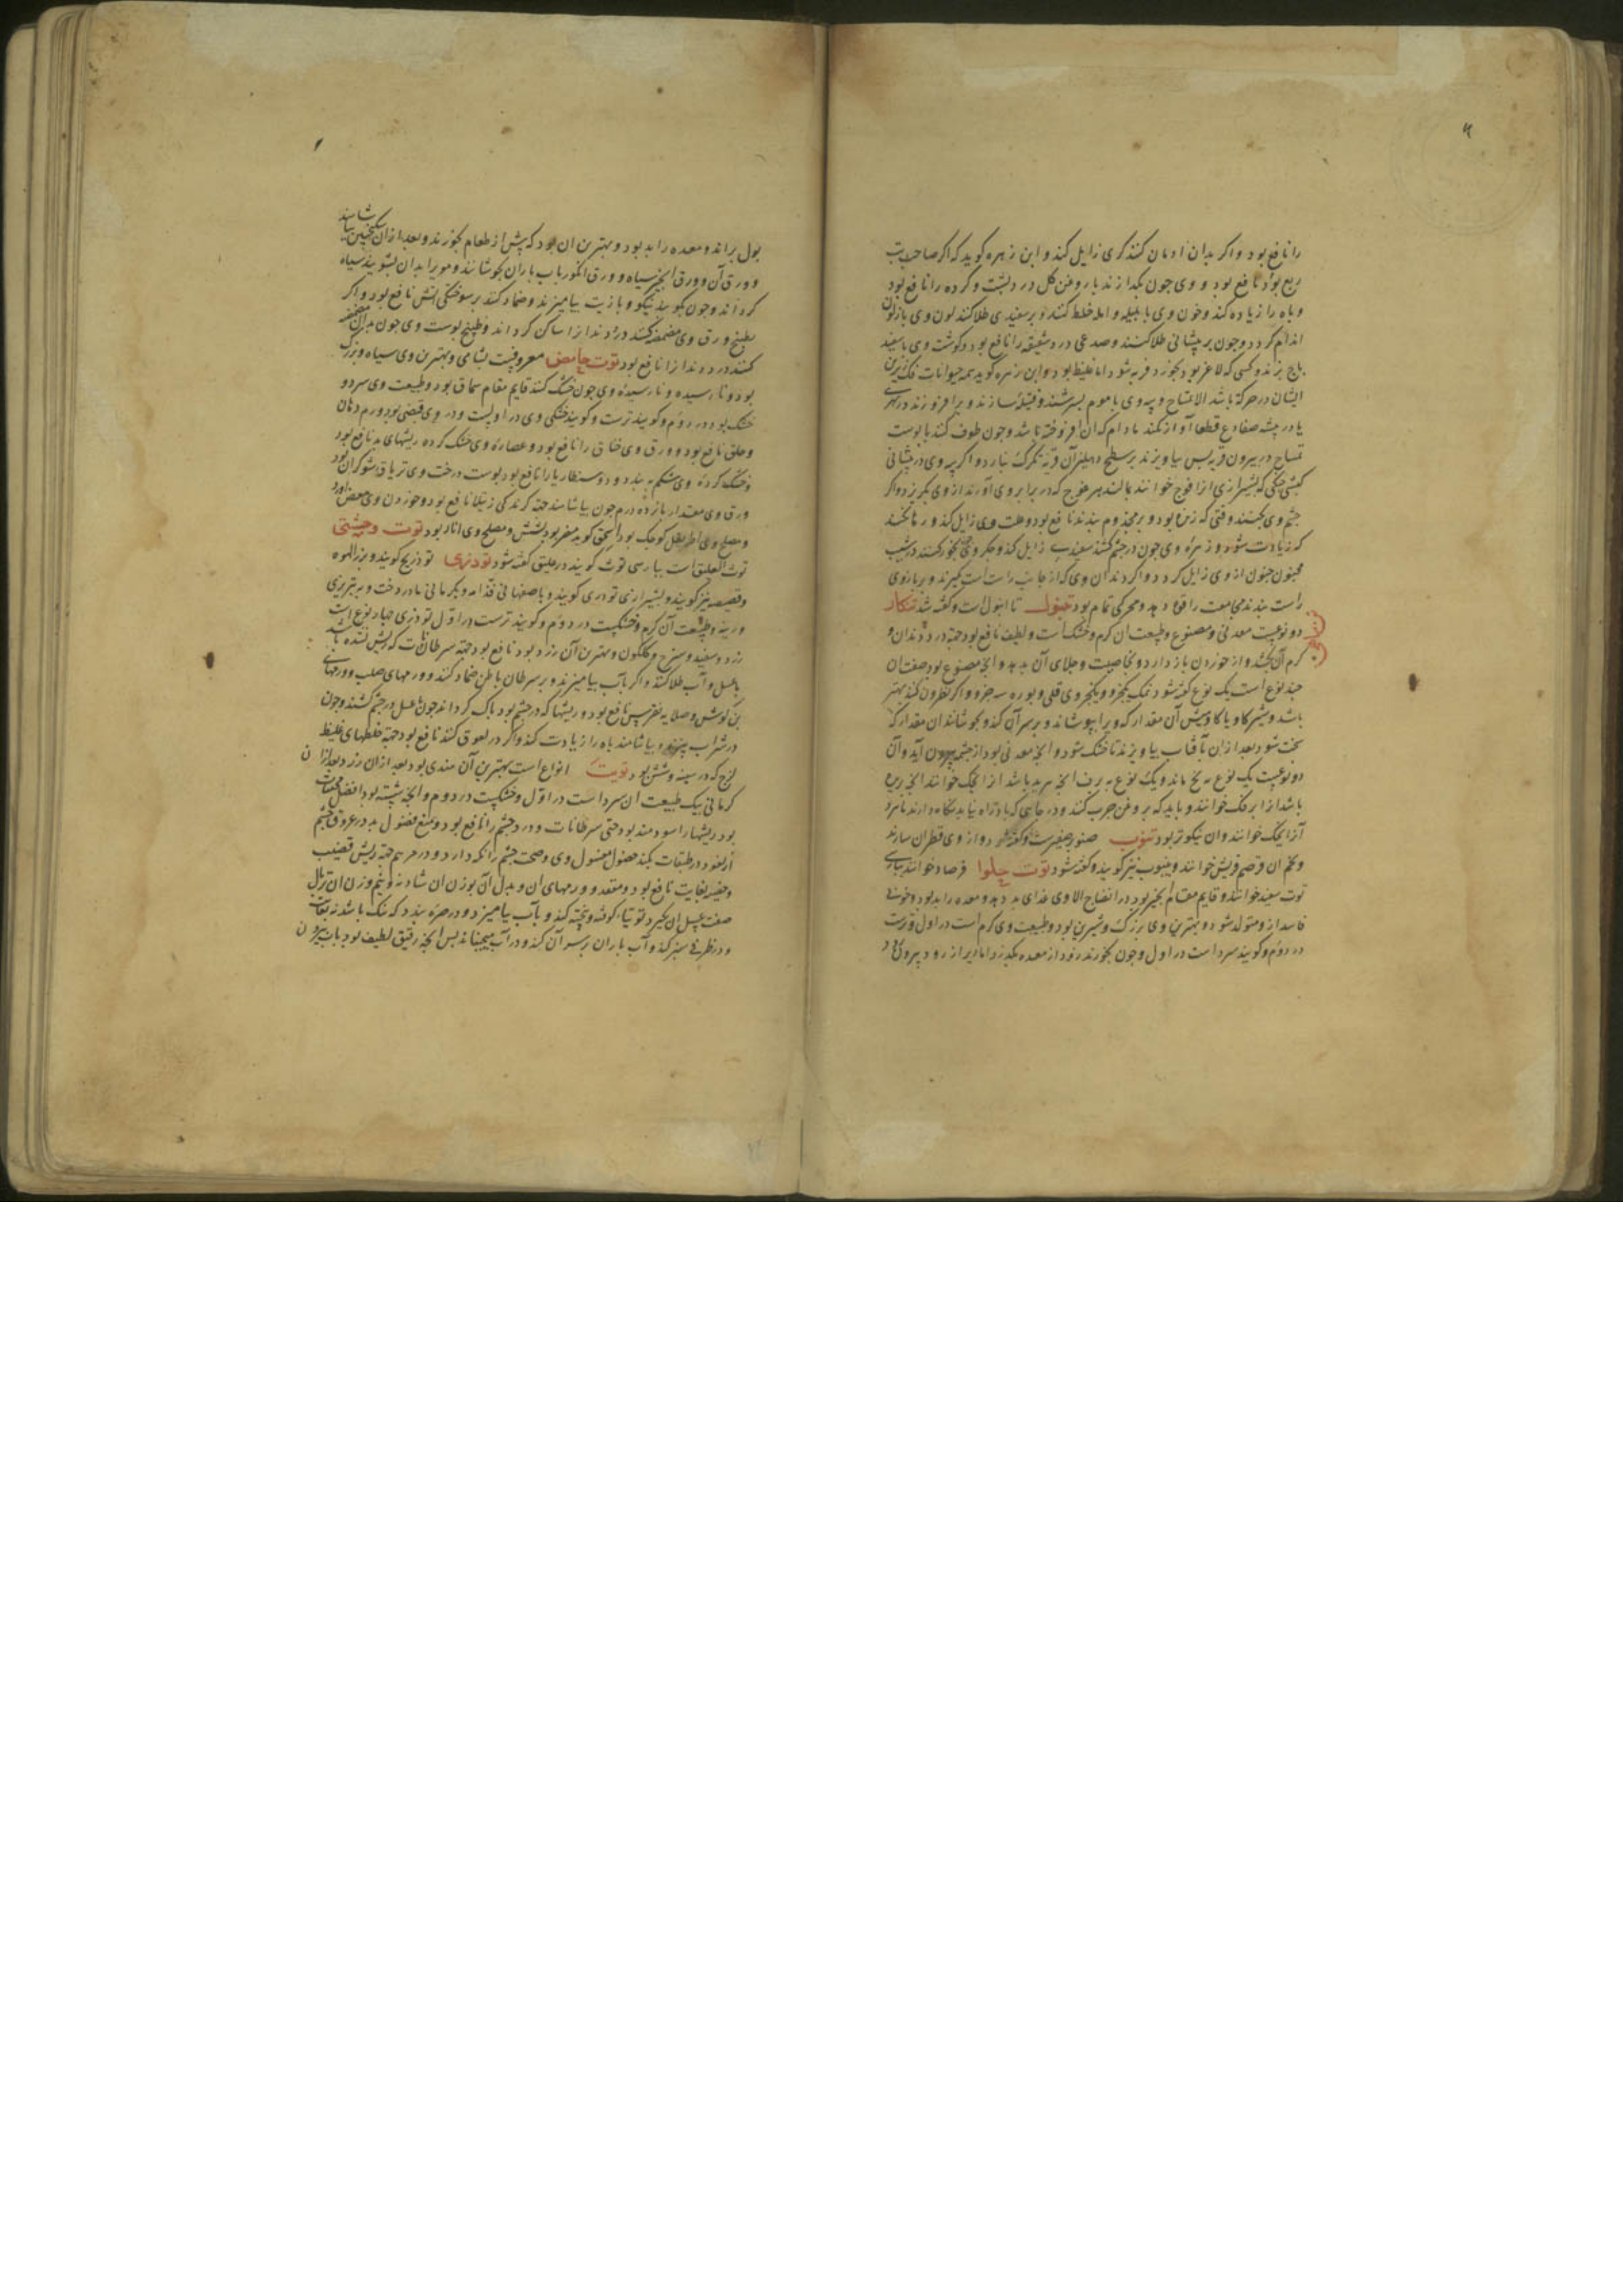 را نافع بود و اکر بدان ادمان کنند کری زایل کند و ابن زهره کوید که اکر صاحب تب
ربع بود نافع بود و وی چون بکدازند با روغن کل درد پشت و کرده را نافع بود
و باه را زیاده کند و خون وی با بلیله و امله خلط کنند و بر سفیدی طلا کنند لون وی باز لون
اندام کردد و چون بر پیشانی طلا کنند و صدغی درد شقیقه را نافع بود و کوشت وی با سفید
باج بزند و کسی که لاغر بود بخورد فربه شود اما غلیظ بود و ابن زهره کوید همه حیوانات فک زیرین
ایشان در حرکة باشد الا تمساح و پیه وی با موم بسرشند و فتیله سازند و برافروزند در نهری
یا در بیشه ضفادع قطعا آواز نکنند مادام که آن افروخته باشد و چون طوف کنند با پوست
تمساح در بیرون قریه پس بیاویزند بر سطح دهلیز آن قریه تکرک نبارد و اکر پیه وی در پیشانی
کبش جنکی که بشیرازی آنرا قوج خوانند بمالند هر قوج که در برابر وی آورند از وی بکریزد و اکر
چشم وی بکنند وقتی که زنده بود و بر مجذوم بندند نافع بود و علت وی زایل کند و رها نکند
که زیادت شود و زهره وی چون در چشم کشند سفیدی زایل کند و جکر وی بخور کنند در شیب
مجنون جنون از وی زایل کردد و اکر دندان وی که از جانب راست است کیرند و بر بازوی
راست بندند مجامعت را قوة دهد و محرکی تمام بود تنبول تا انبول است و کفته شد تنکار
دو نوعست معدنی و مصنوع و طبیعت آن کرم و خشک است و لطیف نافع بود جهة درد دندان و
کرم آن بکشد و از خوردن باز دارد و بخاصیت و جلای آن بدهد و آنچه مصنوع بود صفت آن
چند نوع است یک نوع کفته شود نمک یکجزو و یکجزو قلی و بوره سه جزو و اکر نطرون کند بهتر
باشد و شیر کاو یا کاومیش آن مقدار که ویرا بپوشاند و بر سر آن کند و بجوشاند آن مقدار که
پخته شود بعد از آن بآفتاب بیاویزند تا خشک شود و آنچه معدنی بود از چشمه بیرون آید و آن
دو نوعست یک نوع به یخ ماند و یک نوع به برف
باشد از و باید که بروغن چرب کنند و در جایی که باد راه نیابد نکاه دارند
خوانند و آن نیکوتر بود تنوب صنوبر صغیرست و کفته شود و از وی قطران سازند
و تخم آن قضم قریش خوانند و ینبوب نیز کویند و کفته شود توت حلوا فرصاد خوانند بپارسی
توت سفید خوانند و قایم مقام انجیر بود در انضاج الا وی غذای بد دهد و معده را بد بود و خونی
فاسد از و متولد شود و بهترین وی بزرک و شیرین بود و طبیعت وی کرم است در اول و ترست
در دوم و کویند سرد است در اول و چون بخورند زود از معده بکذرد اما دیر از روده بیرون آید و
بول براند و معده را بد بود و بهترین آن بود که پیش از طعام بخورند و بعد از آن سکنجبین بیاشامند
و ورق آن و ورق انجیر سیاه و ورق انکور بآب باران بجوشانند و مویرا بدان بشویند سیاه
کرداند و چون بکوبند نیکو و با زیت بیامیزند و ضماد کنند بر سوختکی آتش نافع بود و اکر
بطبیخ ورق وی مضمضه کنند درد دندانرا ساکن کرداند و طبیخ پوست وی چون بدان مضمضه
کنند درد دندانرا نافع بود توت حامض معروفست بشامی و بهترین وی سیاه و بزرک
بود و نارسیده و نارسیده وی چون خشک کنند قایم مقام سماق بود و طبیعت وی سرد و
خشک بود در دوم و کویند ترست و کویند خشکی وی در اولست و در وی قبضی بود ورم دهان
و حلق نافع بود و ورق وی خناق را نافع بود و عصاره وی خشک کرده ریشهای بد نافع بود
و خشک کرده وی شکم ببندد و دوسنطاریا را نافع بود پوست درخت وی تریاق شوکران بود
ورق وی مقدار یازده درم چون بیاشامند جهة کزندکی رتیلا نافع بود و خوردن وی مغص آورد
و مصلح وی اطریفل کوچک بود اسحق کوید مضر بود بشش و مصلح وی انار بود توت وحشی
توث العلیق است بپارسی توث کویند در علیق کفته شود تودری تودریج کویند و بزر الهوه
و قصیصه نیز کویند و بشیرازی تودری کویند و باصفهانی قدامه و بکرمانی مادردخت و بتبریزی
و طبیعت آن کرم و خشکست در دوم و کویند ترست در اول تودری چهار نوع است
زرد و سفید و سرخ و کلکون و بهترین آن زرد بود نافع بود جهة سرطانات که ریش نشده باشد
با عسل و آب طلا کنند و اکر بآب بیامیزند و بر سرطان باطن ضماد کنند و ورمهای صلب و ورمهای
بن کوش و صلابه نقرس نافع بود و ریشها که در چشم بود پاک کرداند چون با عسل در چشم کشند و چون
در شراب پزند و بیاشامند باه را زیادت کند و اکر در لعوق کنند نافع بود جهة خلطهای غلیظ
لزج که در سینه و شش بود توتیا انواع است بهترین آن هندی بود بعد از آن زرد بعد از آن
کرمانی طبیعت آن سرد است در اول و خشکست در دوم و آنچه شسته بود افضل مجففات
بود ریشها را سودمند بود حتی سرطانات و درد چشم را نافع بود و منع فضول بد در عروق چشم
از نفوذ در طبقات بکند خصوصا مغسول وی و صحت چشم را نکه دارد و در مرهم جهة ریش قضیب
و خصیه بغایت نافع بود و مقعد و ورمهای آن و بدل آن بوزن آن شادنه و نیم وزن آن توبال
صفت غسل آن بکیرد توتیا کوفته و بیخته کند و بآب بیامیزد و در خرقه بندد که تنک باشد نه بغایت
و در ظرفی سبز کند و آب باران بر سر آن کند و در آب بجنباند پس آنچه رقیق لطیف بود بآب بیرون